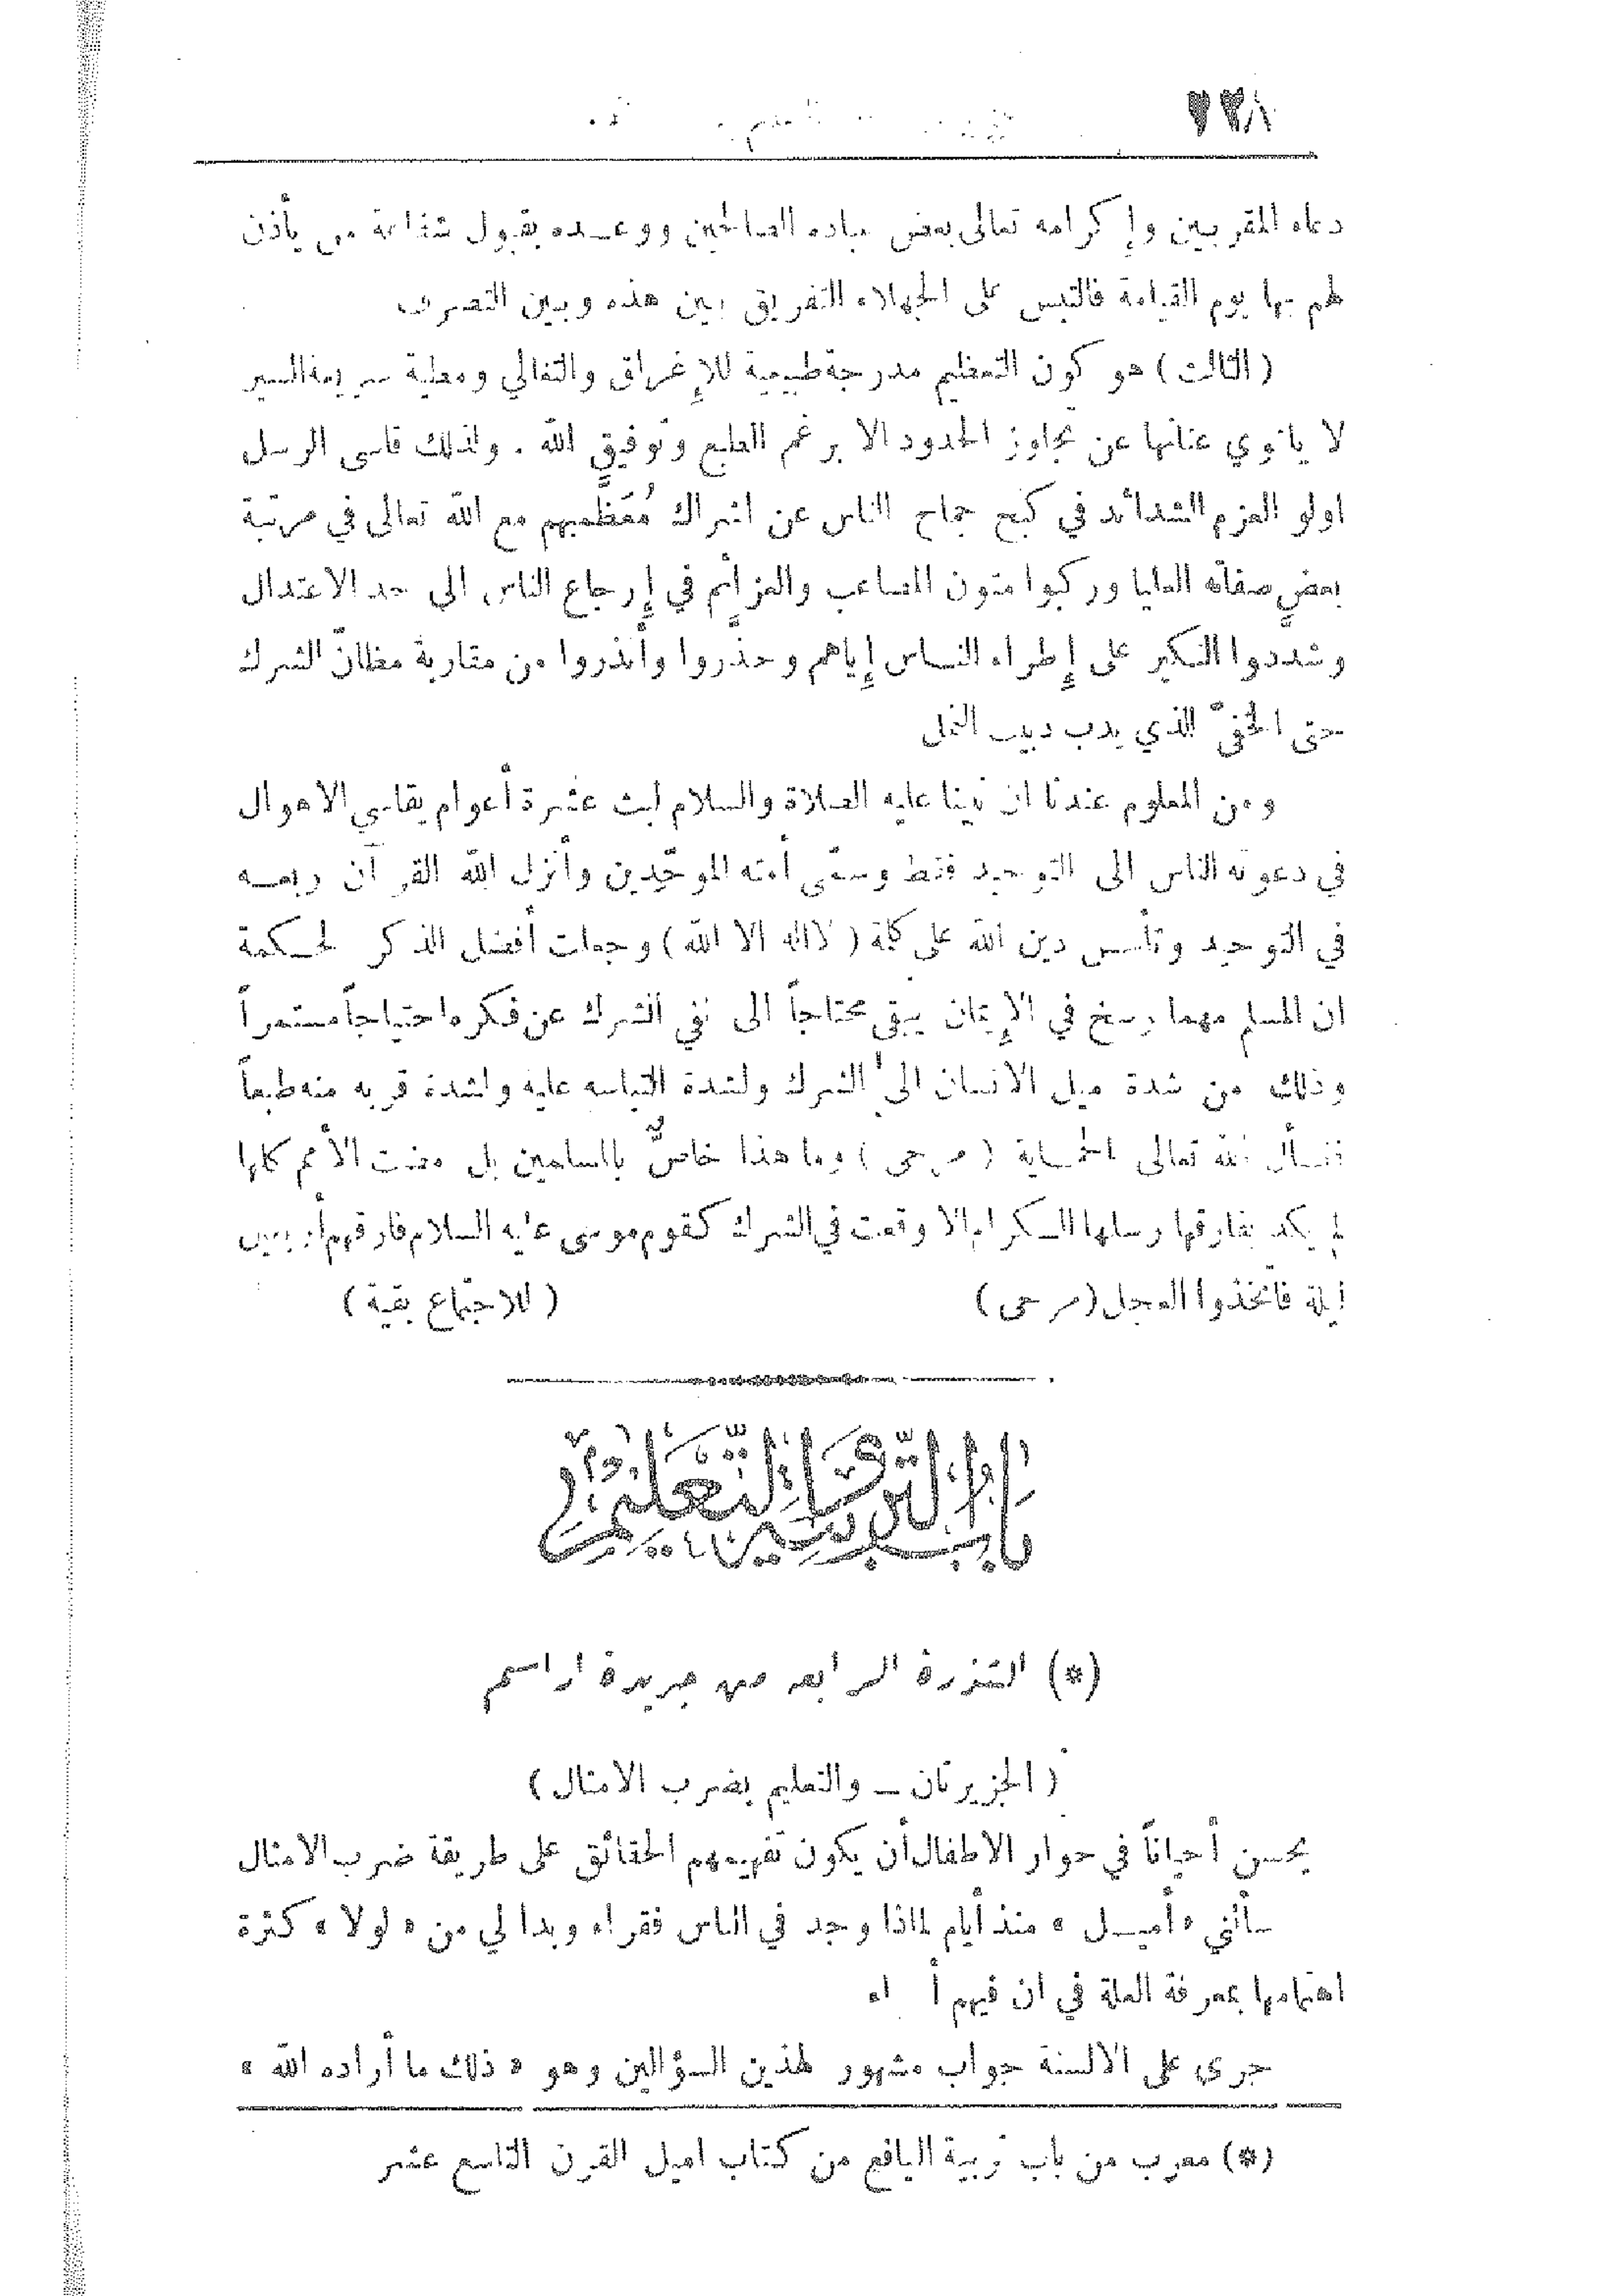 دعاء المقربين وإكرامه تعالى بعض عباده الصالحين ووعده بقبول شفاعة من يأذن
لهم بها يوم القيامة فالتبس على الجهلاء التفريق بين هذه وبين التصرف
(الثالث) هو كون التعظيم مدرجة طبيعية للإغراق والتغالي ومطية سريعة السير
لا يلوي عنانها عن تجاوز الحدود الا برغم الطبع وتوفيق الله . ولذلك قاسى الرسل
اولو العزم الشدائد في كبح جماح الناس عن اشراك مُعَظَّميهم مع الله تعالى في مرتبة
بعض صفاته العليا وركبوا متون المصاعب والعزائم في إرجاع الناس الى حد الاعتدال
وشددوا النكير على إطراء الناس إياهم وحذّروا وأنذروا من مقاربة مظانّ الشرك
حتى الخفيّ الذي يدب دبيب النمل
ومن المعلوم عندنا ان نبينا عليه الصلاة والسلام لبث عشرة أعوام يقاسي الاهوال
في دعوته الناس الى التوحيد فقط وسمّى أمته الموحّدين وأنزل الله القرآن ربعه
في التوحيد وتأسس دين الله على كلمة (لااله الا الله) وجعلت أفضل الذكر لحكمة
ان المسلم مهما رسخ في الإيمان يبقى محتاجاً الى نفي الشرك عن فكره احتياجاً مستمراً
وذلك من شدة ميل الانسان الى الشرك ولشدة التباسه عليه ولشدة قربه منه طبعاً
نسأل الله تعالى الحماية (مرحى) وما هذا خاصٌّ بالمسلمين بل مضت الأمم كلها
لم يكد يفارقها رسلها الكرام إلا وقعت في الشرك كقوم موسى عليه السلام فارقهم أربعين
ليلة فاتخذوا العجل (مرحى) (للاجتماع بقية)
(*) الشذرة الرابعة من جريدة اراسم
(الجزيرتان – والتعليم بضرب الامثال)
يحسن أحياناً في حوار الاطفال أن يكون تفهيمهم الحقائق على طريقة ضرب الامثال
سألني «أميل» منذ أيام لماذا وجد في الناس فقراء وبدا لي من «لولا» كثرة
اهتمامها بمعرفة العلة في ان فيهم
جرى على الالسنة جواب مشهور لهذين السؤالين وهو «ذلك ما أراده الله»
(*) معرب من باب تربية اليافع من كتاب اميل القرن التاسع عشر